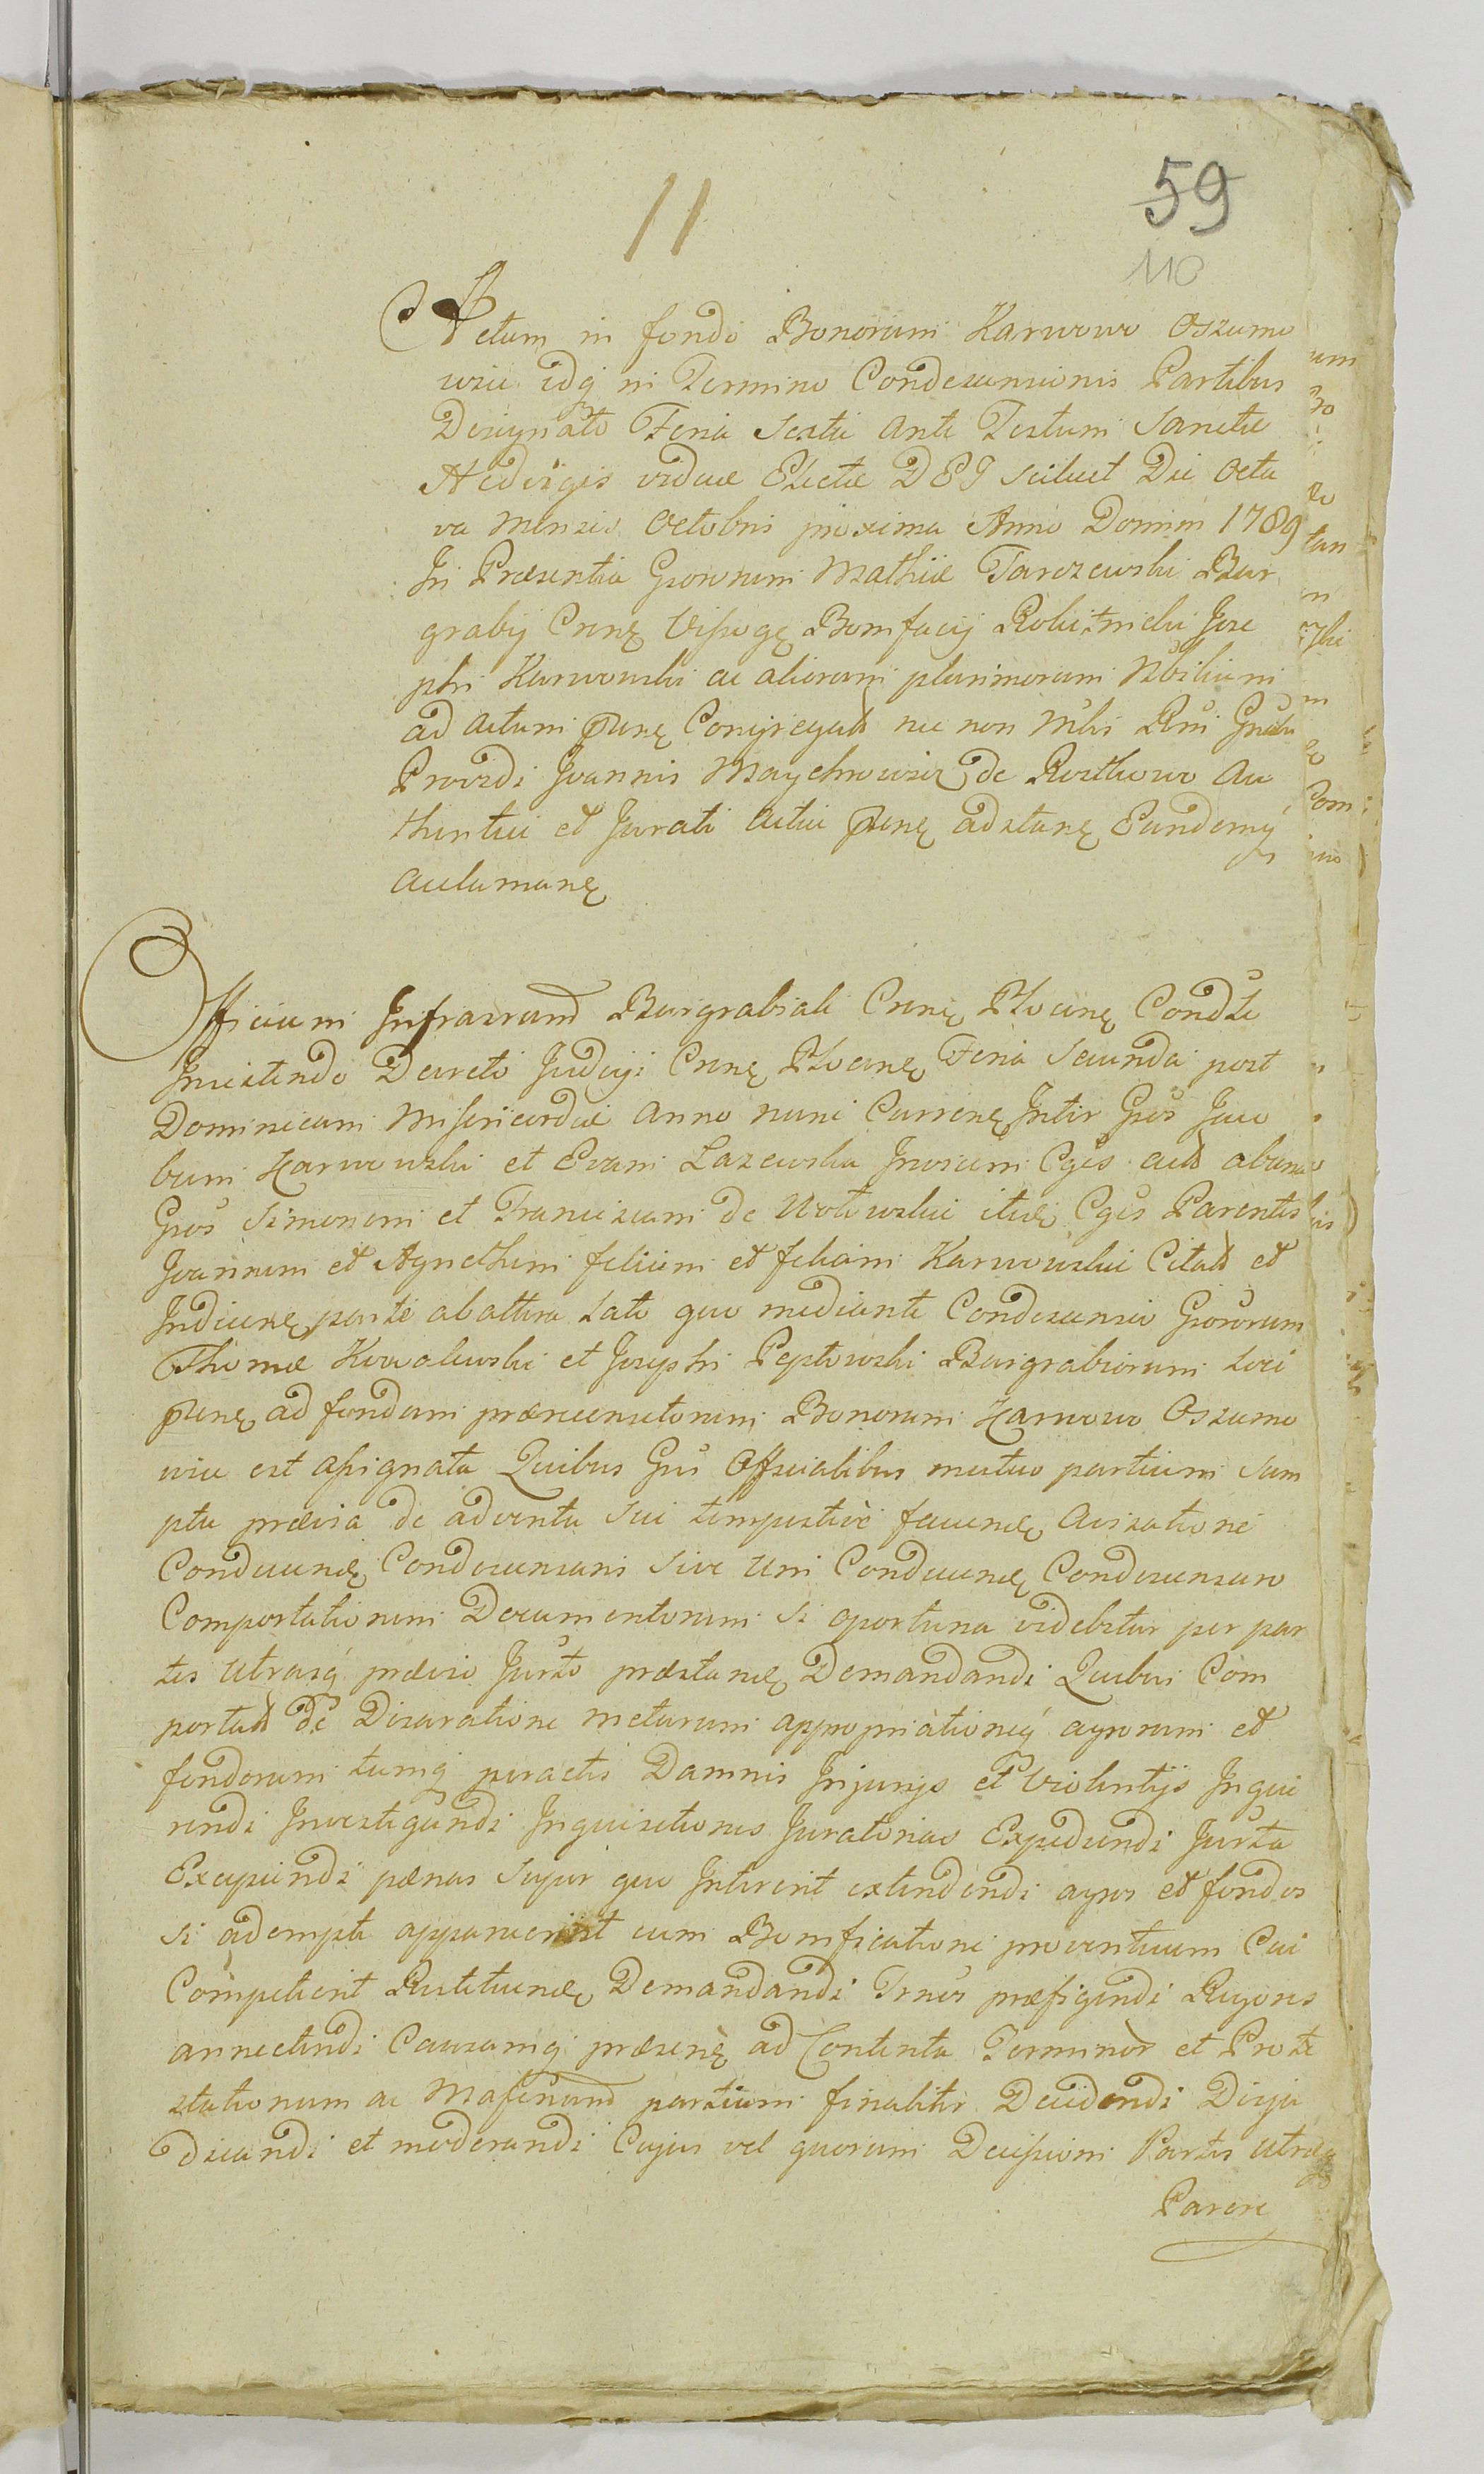 11
59
110
Actum in fundo Bonorum Karwowo Oszumo
wiu idq in Termino Condescensionis Partibus
Designato Feria Sexta ante Festum Sanctæ
Hedvigis viduæ Electæ DEI scilicet Die Octa
va Mensis Octobris proxima Anno Domini 1789
In Præsentia Gsorum Mathiæ Tarczewski Bur
grabij Cnenę Vissogę Bonifacij Jose
phi Karwowski ac aliorum plurimorum Nobilium
ad actum Pnnę Congregatt nec non
Provdi Joannis de Au
thentici et Jurati actui Pnnę adstanę Eundemq
acclamanę
Officium Infrascrum Burgrabiale Cnenę Plocenę Condte
Insistendo Decreto Judicij Cnenę Plocenę Feria Secunda post
Dominicam Misericordiæ anno nunc Currenę Inter Gsos Jaco
bum Karwowski et Evam Lazewska Invicem Cgës actt ab una
Gsos Simonem et Franciscam de itidę Cgës Parentes
Joannem et Agnethem filium et filiam Karwowskie Citatt et
Indicenę parte ab altera Lato quo mediante Condescensio Gsorum
Thomæ Kowalewski et Josephi Peptowski Burgrabiorum Loci
Pnnę ad fundum prærecensitorum Bonorum Karwowo Oszumo
wiu est assignata Quibus Gsis Officialibus mutuo partium Sum
ptu prævia de adventu Sui tempestivè faciendę avisatione
Conducendę Condescensuris Sive uni Conducendę Condescensuro
Comportationem Documentorum Si oportuna videbitur per par
tes utrasq prævio Jurto præstandę Demandandi Quibus Com
portatt de Disparatione metarum appropriationeq agrorum et
fundorum tumq peractis Damnis Injurijs et Violentijs Inqui
rendi Investigandi Inquisitiones Juratorias Expediendi Jurta
Excipiendi pænas Super quo Intererit extendendi agros et fundos
si adempta apparuerint cum Bonificatione proventuum Cui
Competierit Restituendę Demandandi Trnos præfigendi Rigores
annectendi Causamq præsenę ad Contenta Terminor et Prote
stationum ac partium finaliter Decidendi Diju
dicandi et moderandi Cujus vel quorum Decissioni Partes utræq
Parere